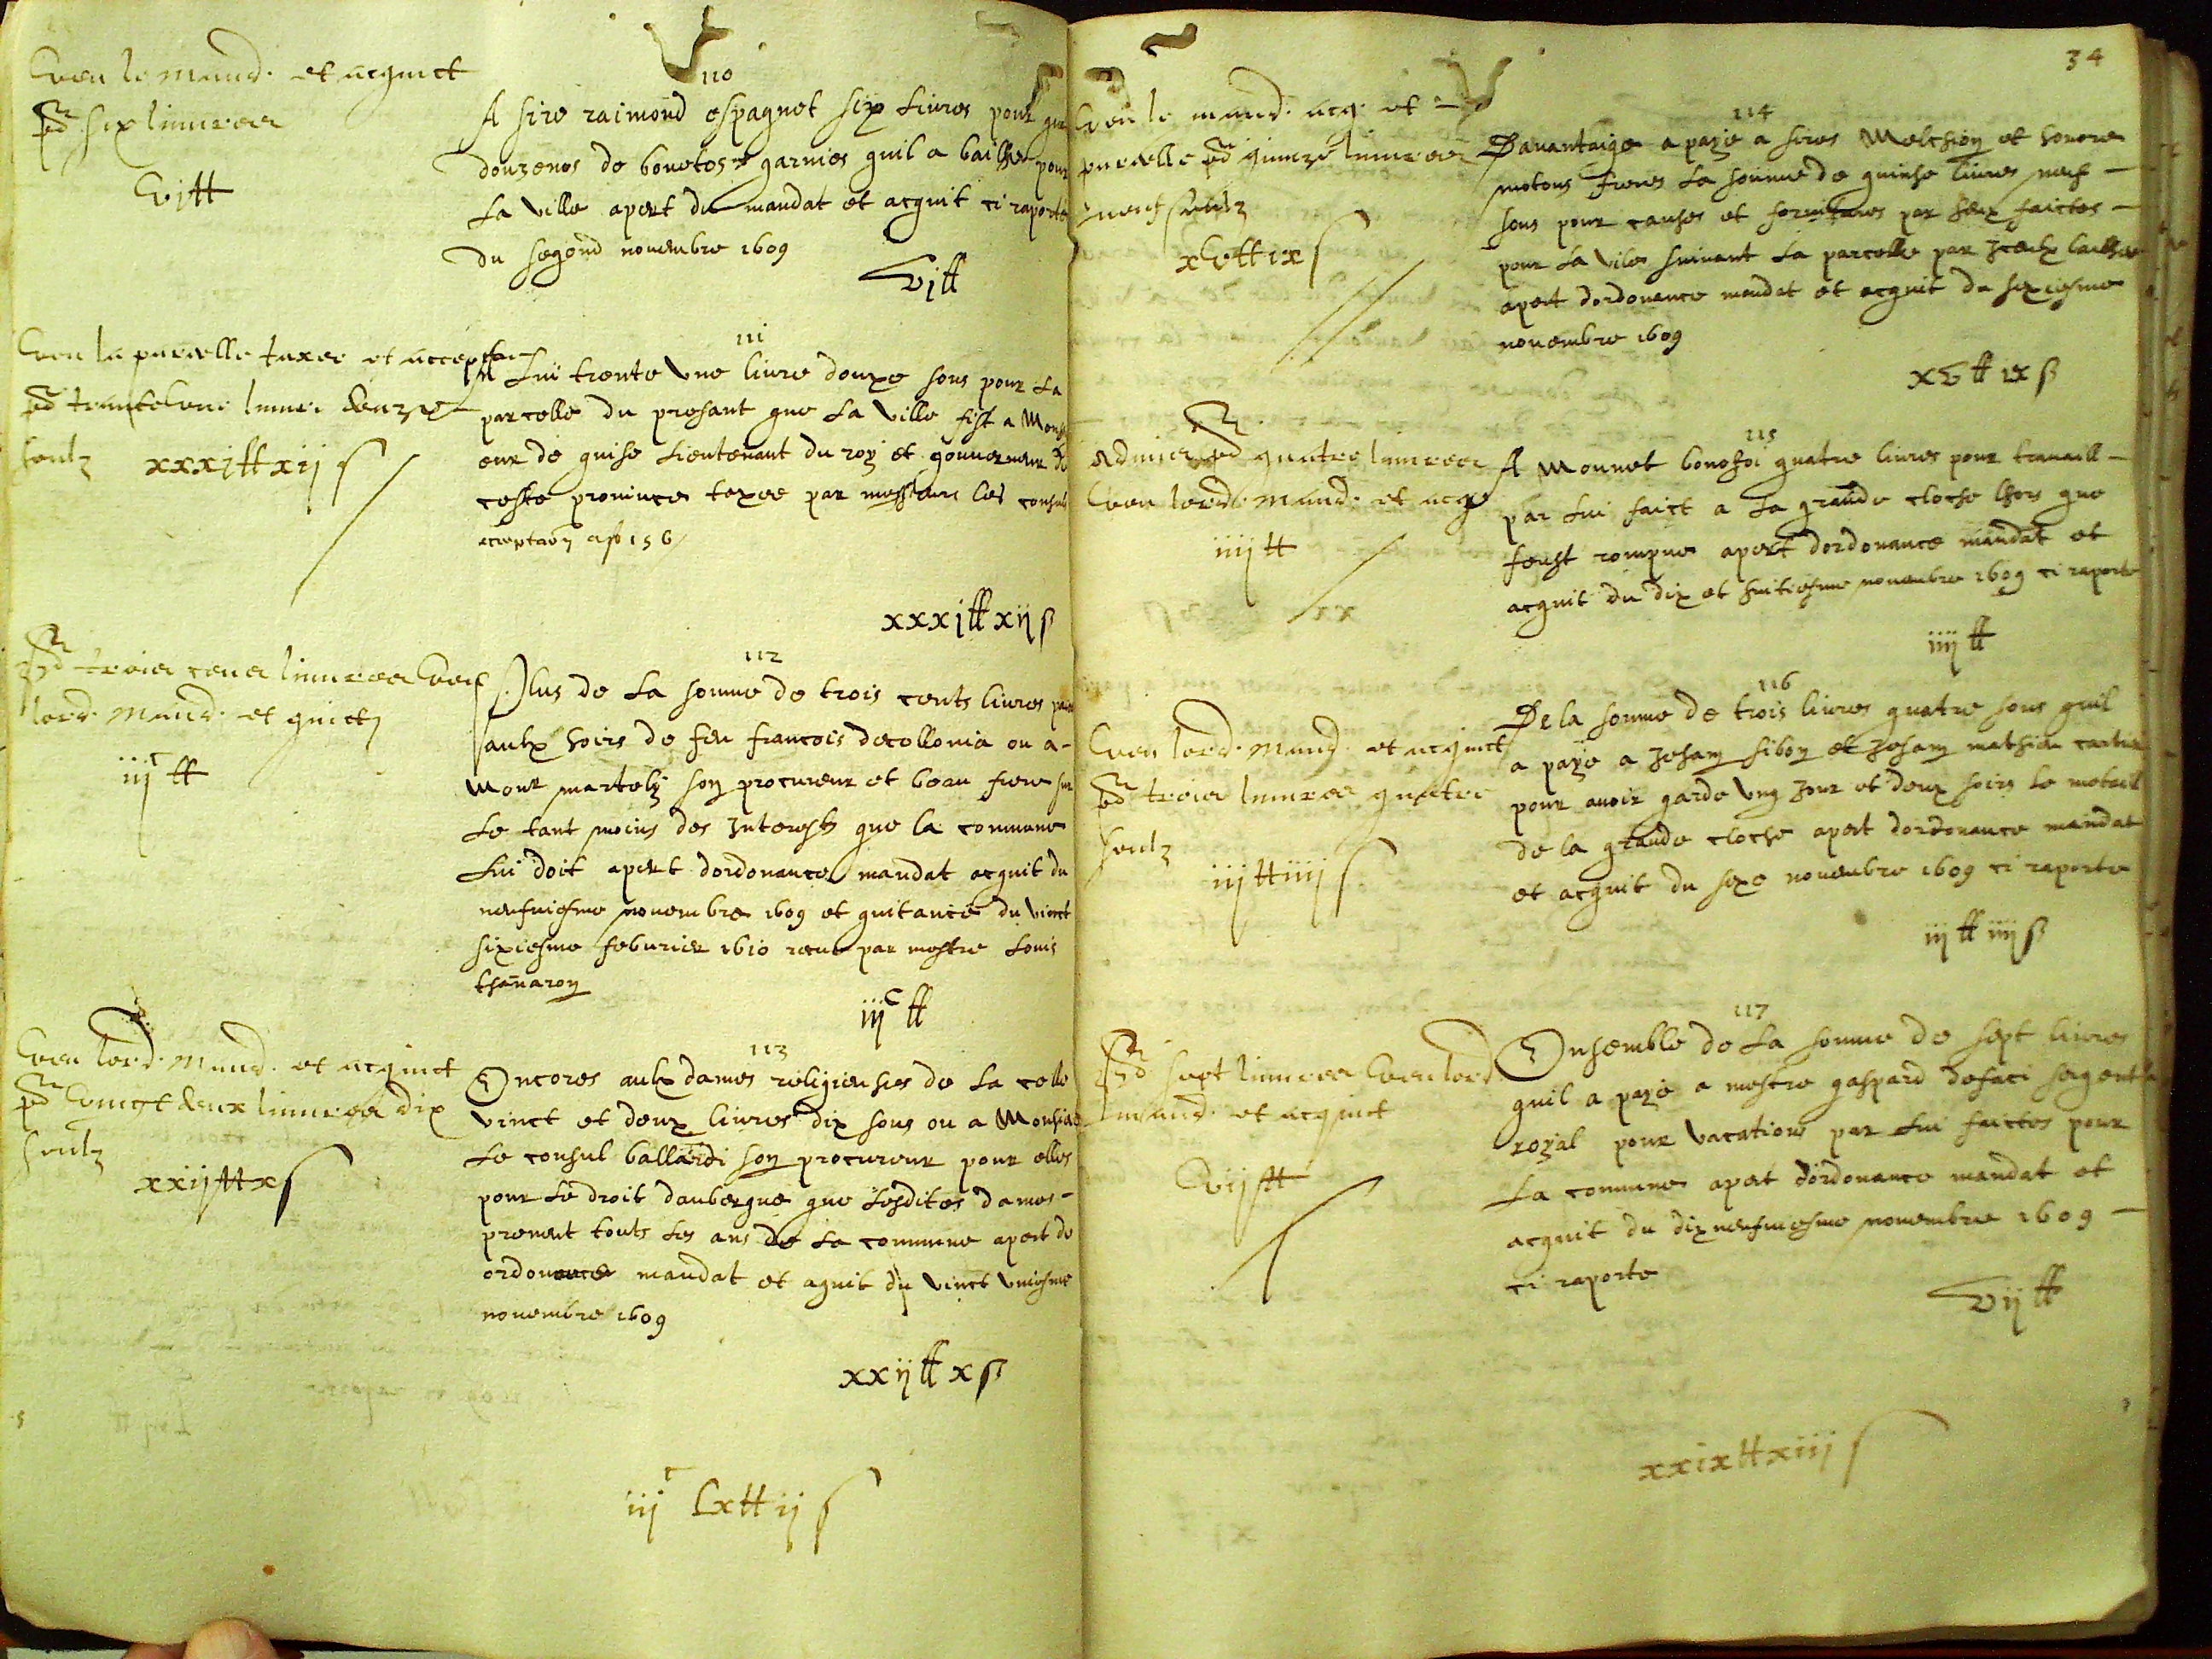 110
Veu le mand. et acquict
pd six livres
vj ₶
A sire raimond espagnet six livres pour
douzenes de bonetes garnies quil a bailhe pour
la ville apert du mandat et acquit ci raporte
du segond novembre 1609
vj ₶
111
Veu la parcelle taxee et
pd trente une livre douze
soulz xxxj ₶ xij s
A lui trente une livre douxe sous pour la
parcelle du presant que la ville fist a Mons
eur de guise lieutenant du roy et gouverneur de
ceste province taxee par messieurs les consuls
xxxj ₶ xij s
112
pd trois cens livres veu
lord. mand. et quict
iij c ₶
Plus de la somme de trois cents livres
aulx hoirs de feu francois decollonia ou a
mour martely son procureur et beau frere sur
le tant moins des interests que la commune
lui doit apert dordonance mandat acquit du
neufviesme novembre 1609 et quitance du vinct
sixiesme febvrier 1610 receue par mestre Louis
thanaron
iij c ₶
113
Veu lord. mand. et acquict
pd vingt deux livres dix
soulz
xxij ₶ x s
Encores aulx dames religieuses de la celle
vinct et deux livres dix sous ou a Monsieur
le consul ballardi son procureur pour elles
pour le droit daubergue que lesdites dames
prenent touts les ans de la commune apert de
ordonance mandat et aquit du vinct uniesme
novembre 1609
xxij ₶ x s
iij c Lx ₶ ij s
34
114
Veu le mand. acq. et
parcelle pd quinze livres
neuf soulz
xv ₶ ix s
Davantaige a paye a sires Melchion et honore
motons freres la somme de quinse livres neuf
sous pour causes et fornitures par eux faictes
pour la vile suivant la parcelle par iceulx bailhee
apert dordonance mandat et acquit du sixiesme
novembre 1609
xv ₶ ix s
115
Admis pd quatre livres
Veu lord. mand. et acq
iiij ₶
A Monnet bonefoi quatre livres pour travaill
par lui faict a la grande cloche lhors que
feust rompue apert dordonance mandat et
acquit du dix et huitiesme novembre 1609 ci raporte
iiij ₶
116
Veu lord. mand. et acquict
pd trois livres quatre
soulz
iij ₶ iiij s
De la somme de trois livres quatre sous quil
a paye a Jehan sibon et Jehan mathieu
pour avoir garde ung jour et deux soirs le metail
de la grande cloche apert dordonance mandat
et acquit du sexe novembre 1609 ci raporte
iij ₶ iiij s
117
pd sept livres veu lord.
mand. et acquict
vij ₶
Ensemble de la somme de sept livres
quil a paye a mestre gaspard desaci sergent
royal pour vacations par lui faictes pour
la commune apert dordonance mandat et
acquit du dix neufviesme novembre 1609
ci raporte
vij ₶
xxix ₶ xiij s